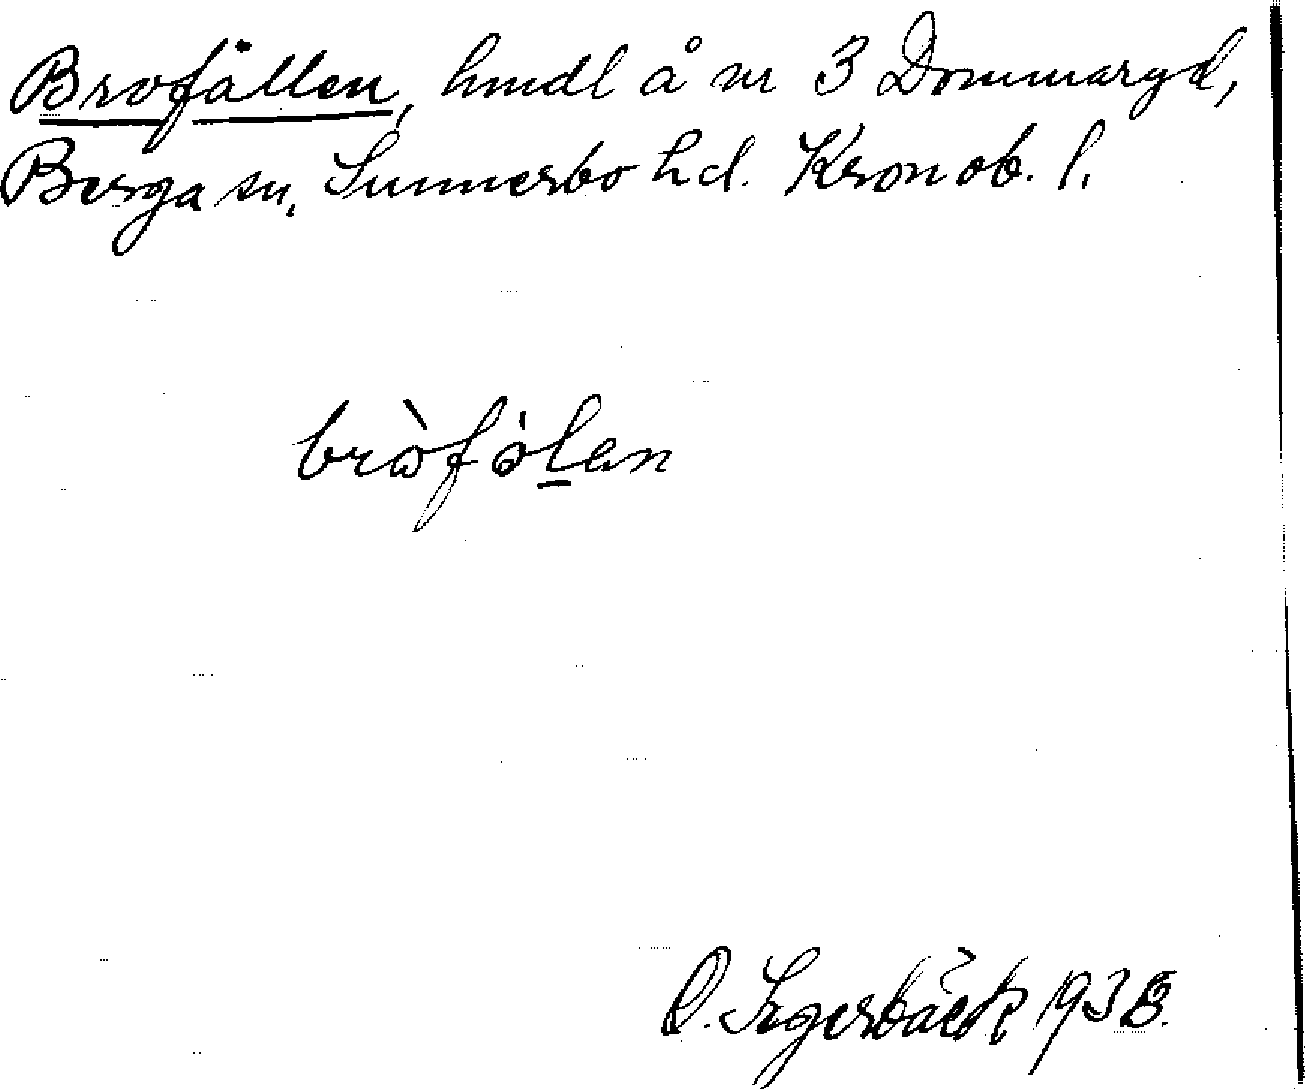 Brofällen, hmdl å nr 3 Dommaryd,
Berga sn, Sunnerbo hd. Kronob. l.
bròfòlen
O. Segerbäck 193